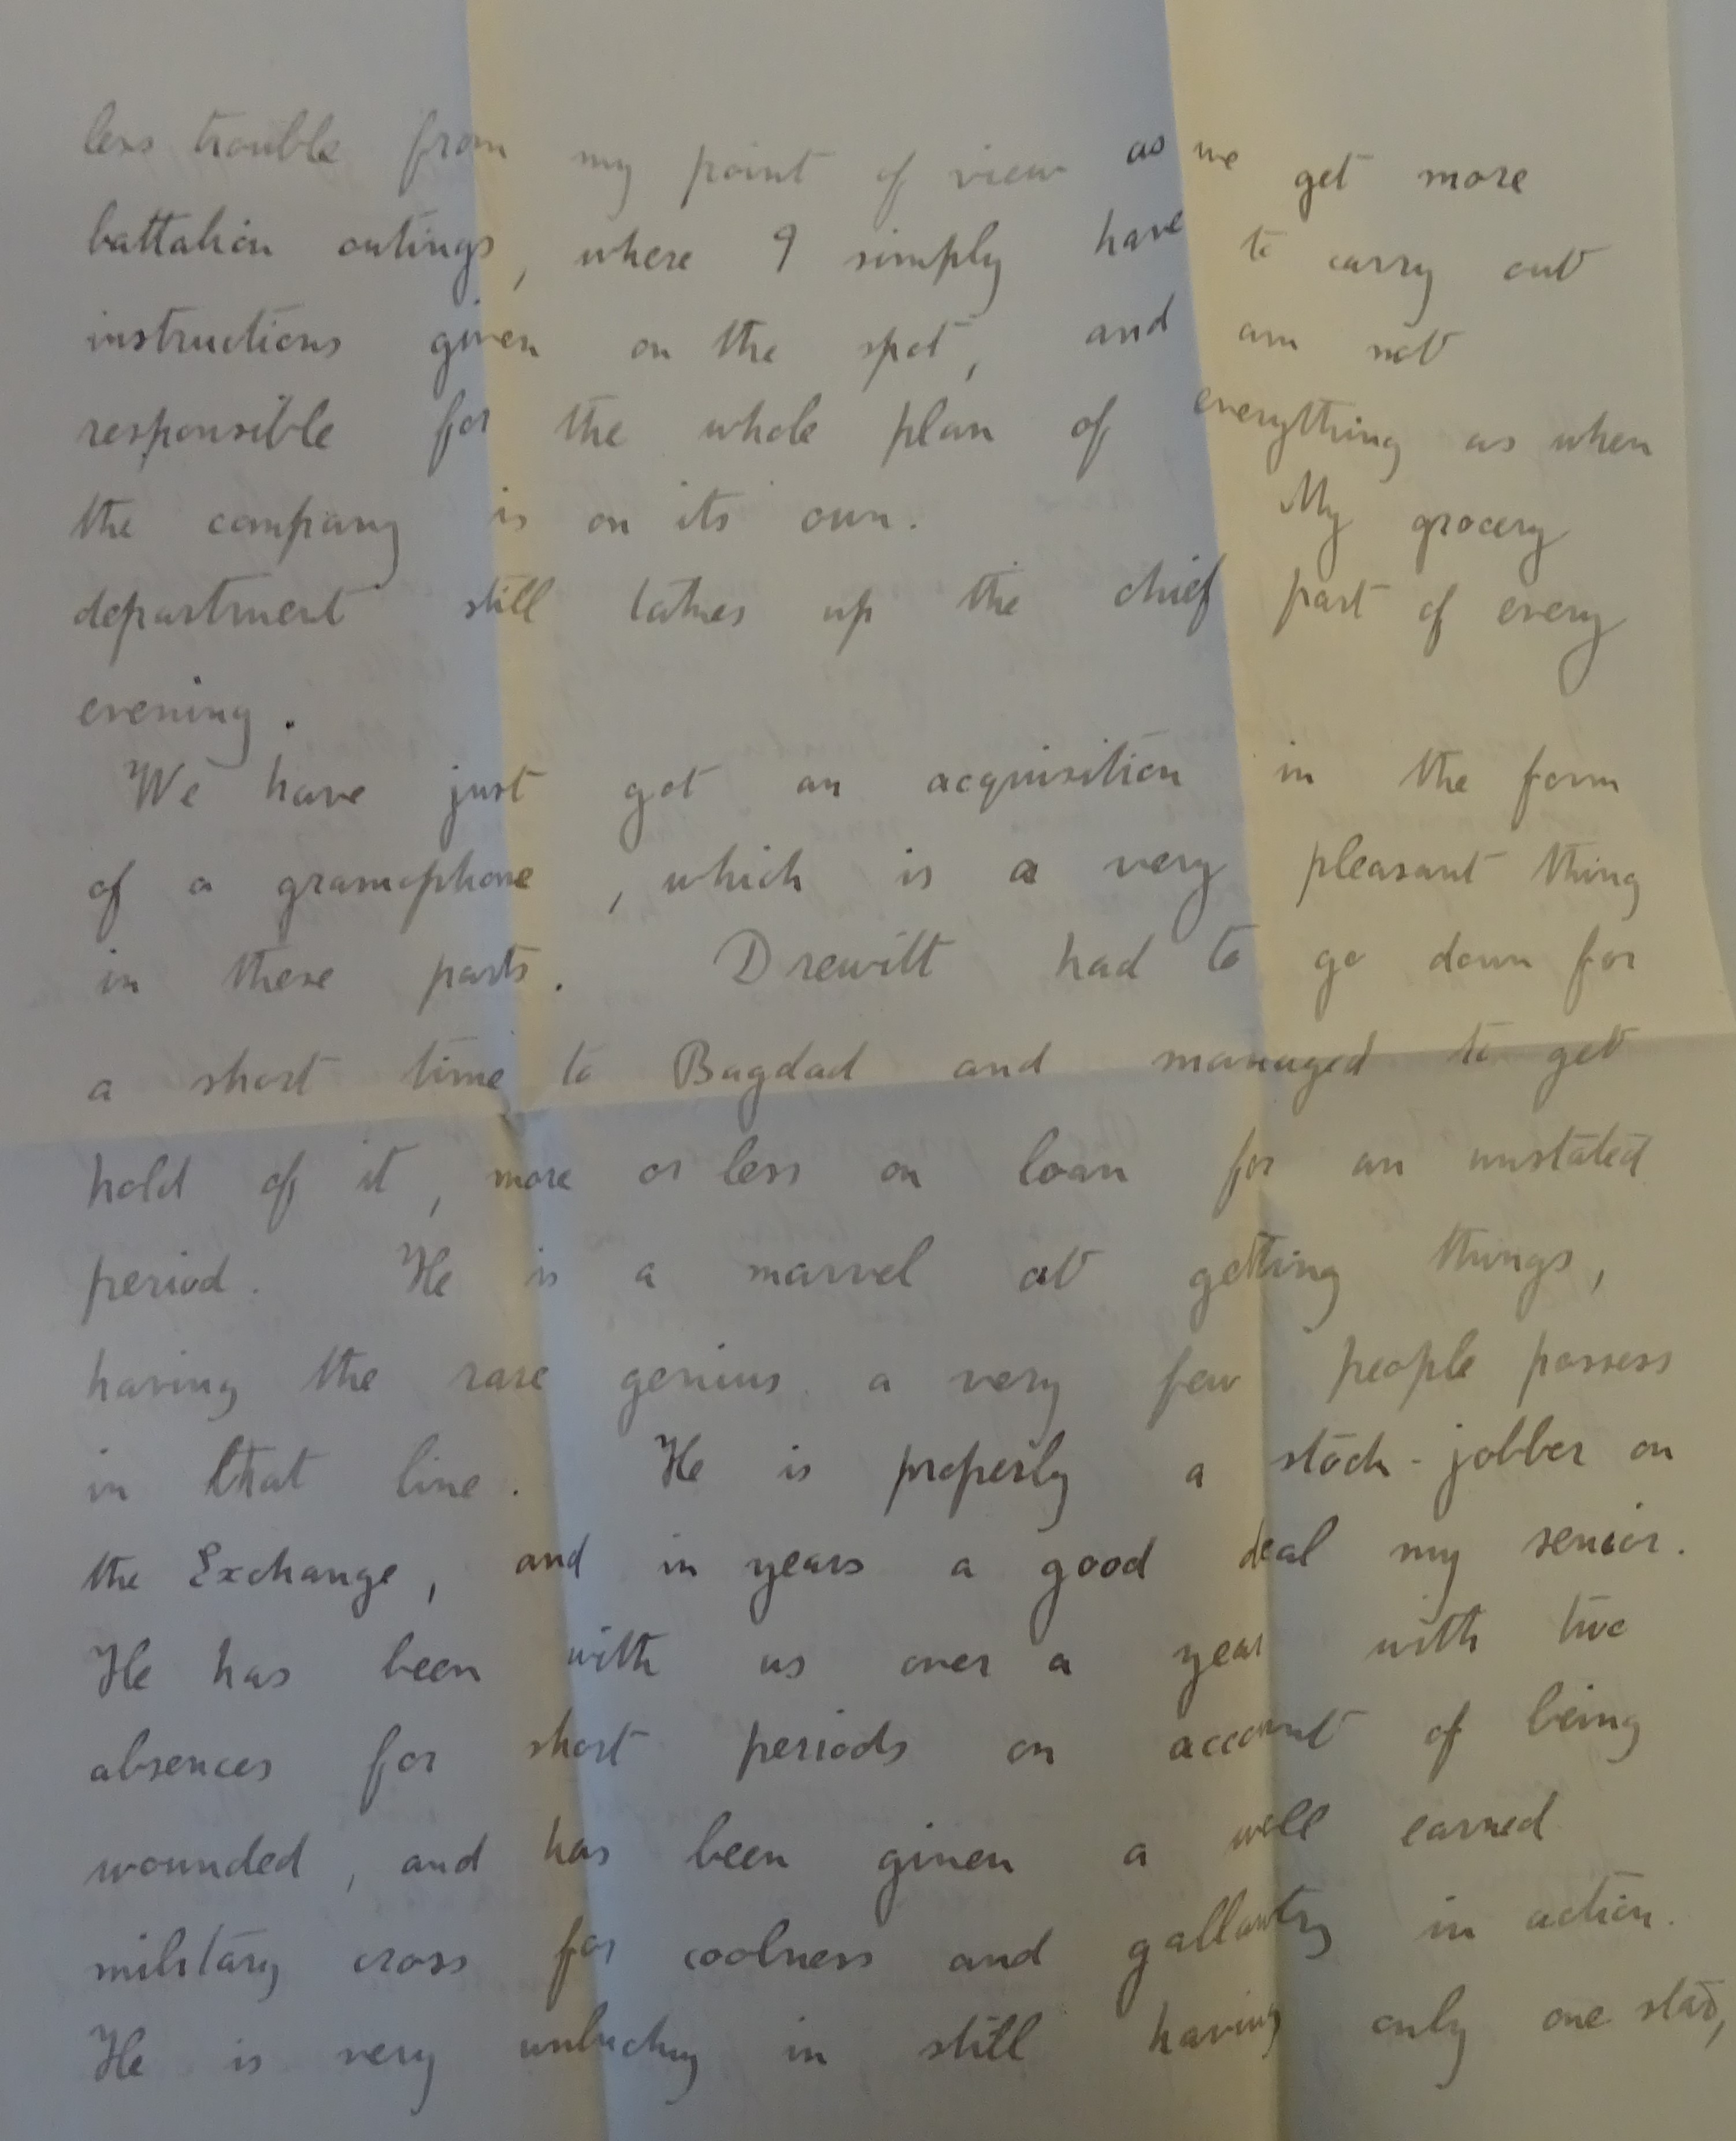 less trouble from my point of view as we get more
battalion outings, where I simply have to carry out
instructions given on the spot, and am not
responsible for the whole plan of everything as when
the company is on its own. My grocery
department still takes up the chief part of every
evening.
We have just got an acquisition in the form
of a gramophone, which is a very pleasant thing
in these parts. Drewitt had to go down for
a short time to Bagdad and managed to get
hold of it, more or less on loan for an unstated
period. He is a marvel at getting things,
having the rare genius a very few people possess
in that line. He is properly a stock-jobber on
the Exchange, and in years a good deal my senior.
He has been with us over a year with two
absences for short periods on account of being
wounded, and has been given a well earned
military cross for coolness and gallantry in action.
He is very unlucky in still having only one star,